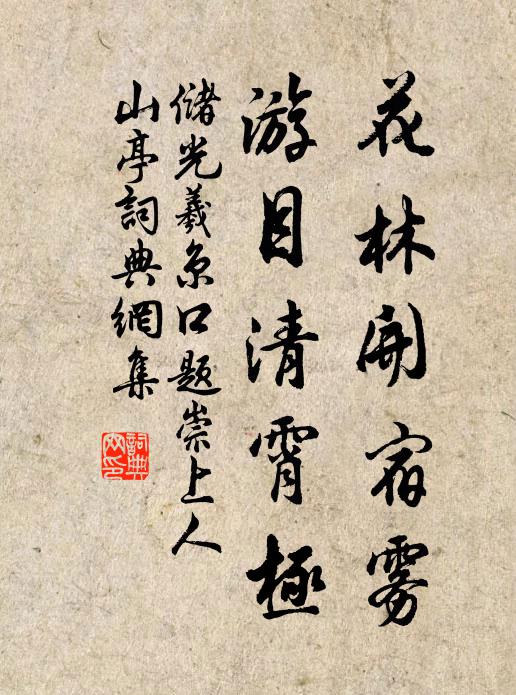 花林開宿雾
游目清霄極
儲光羲京口題崇上人
山亭詞典網集
詞典网印